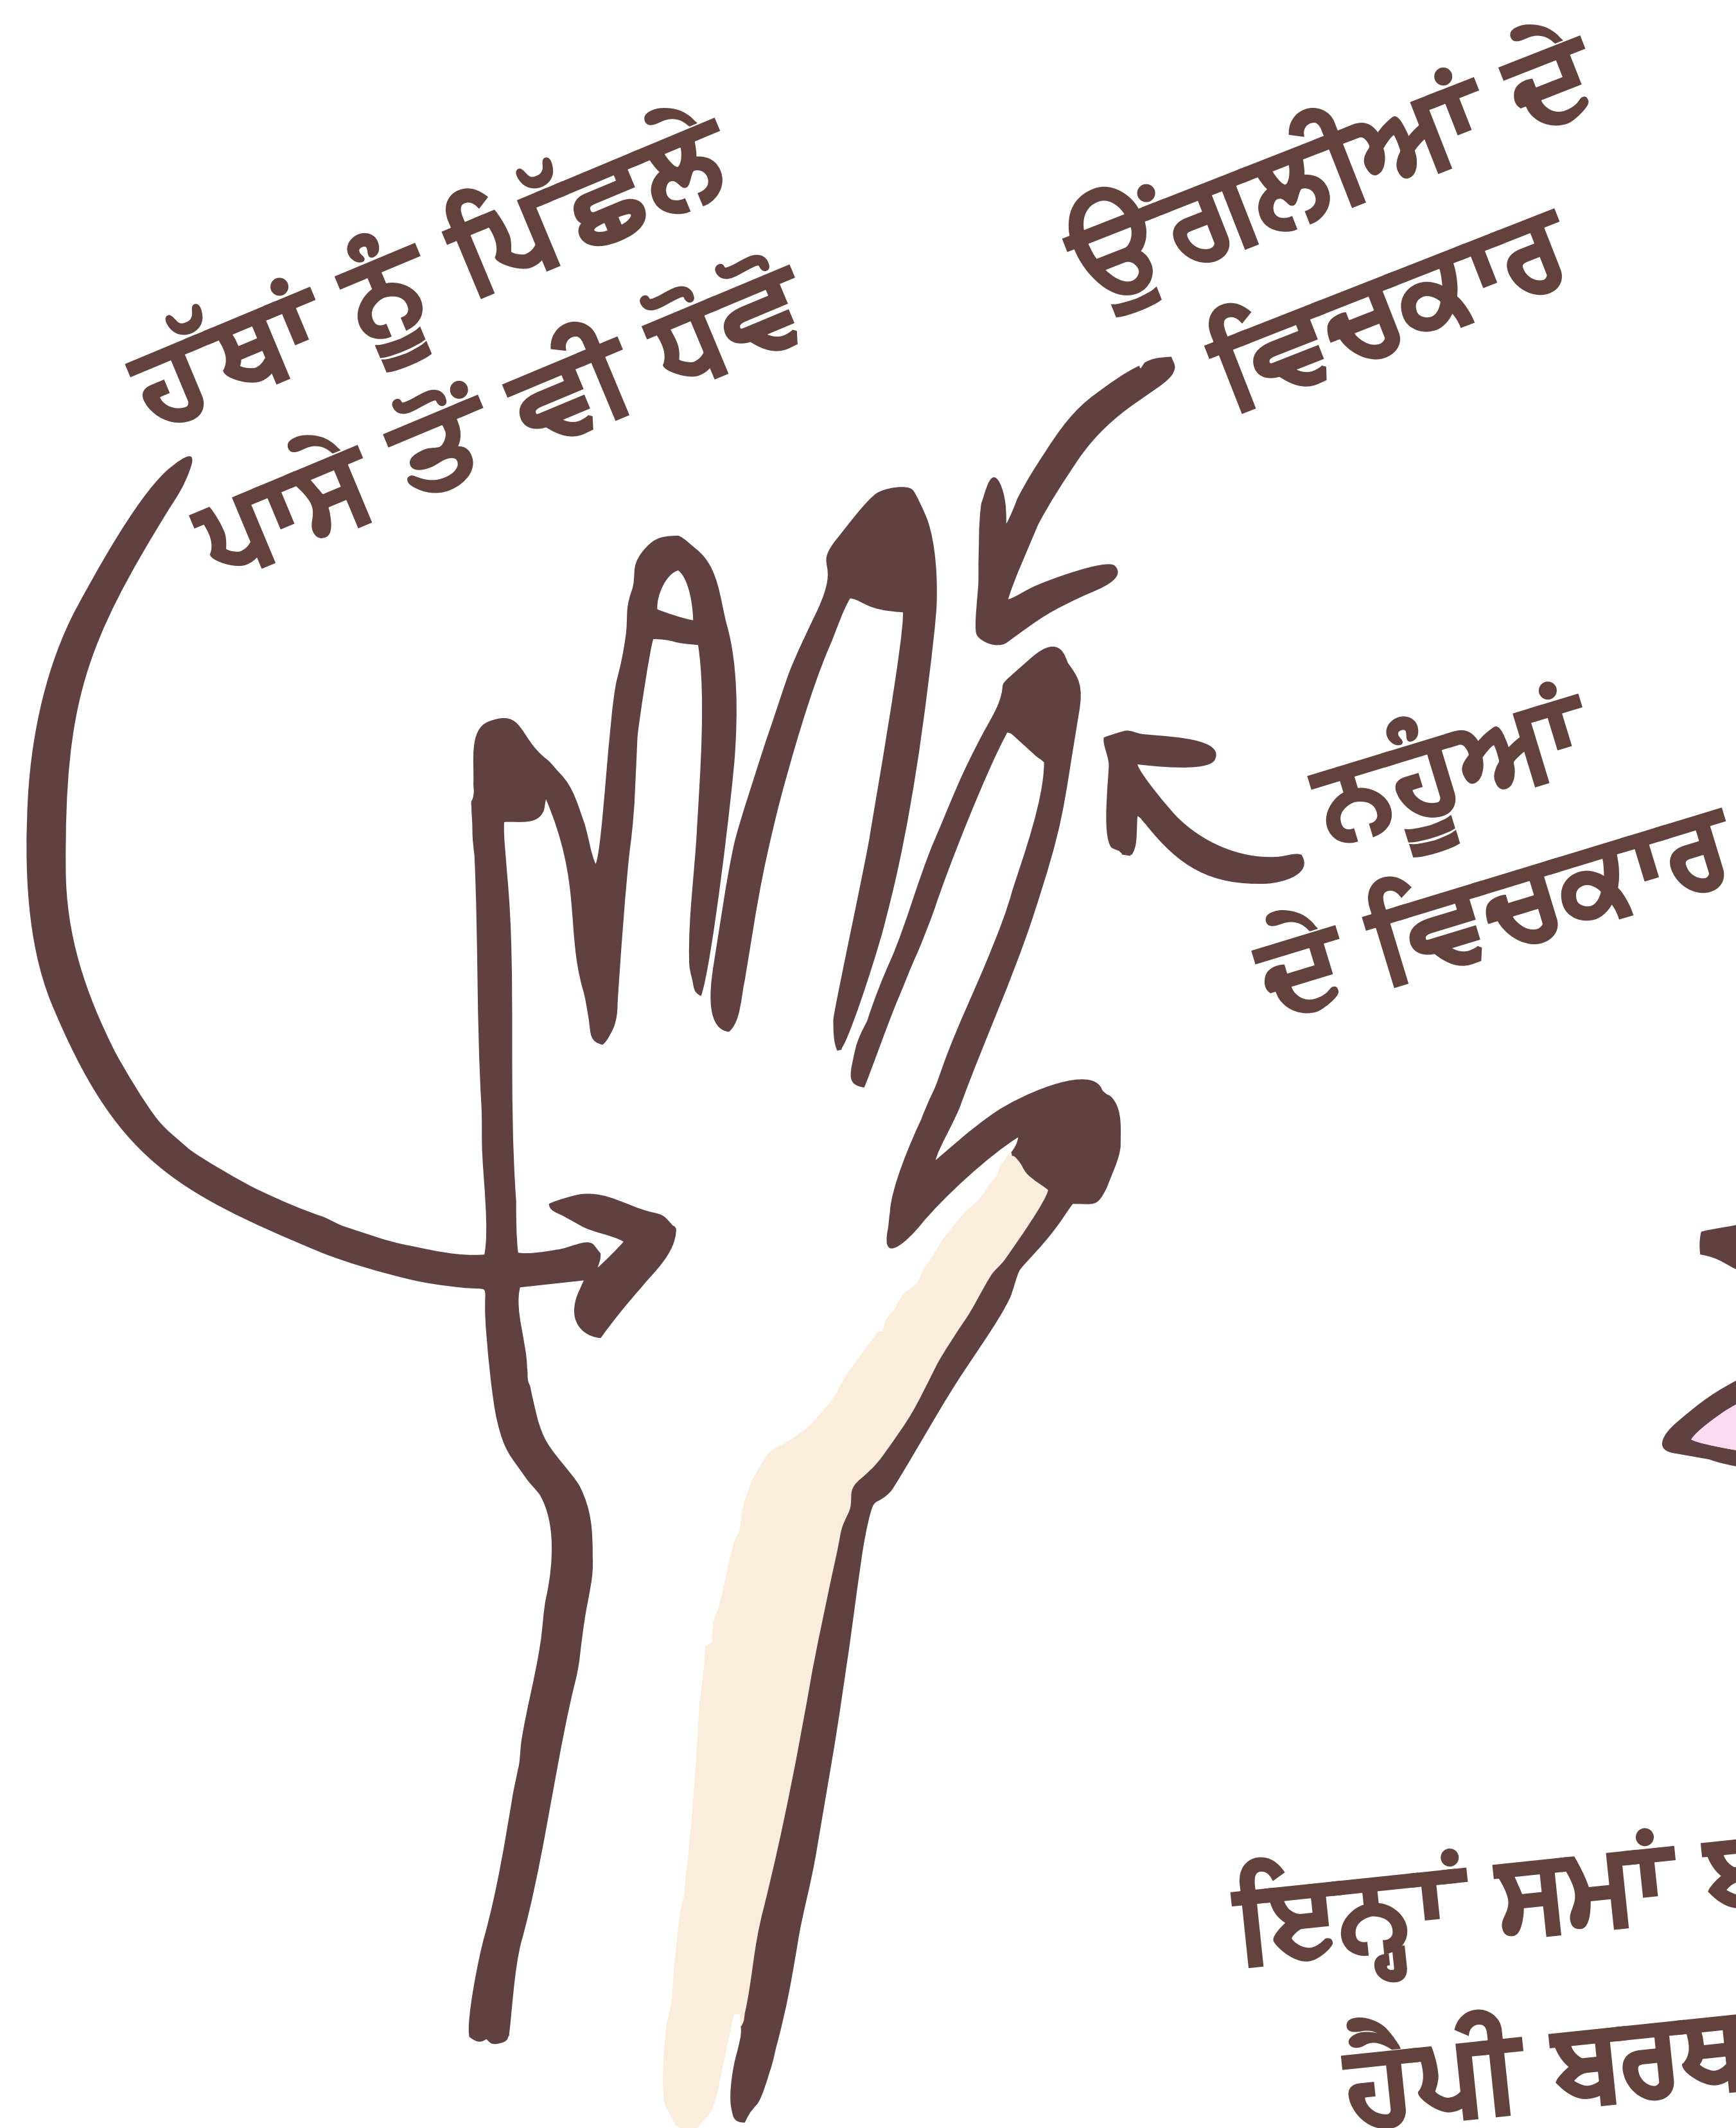 ਹੱਥਾਂ ਨੂੰ ਪਿੱਛਲੇ
ਪਾਸੇ ਤੋਂ ਵੀ ਧੋਵੋ
ਉਂਗਲੀਆਂ ਦੇ
ਵਿਚਕਾਰ
ਨਹੂੰਆਂ
ਦੇ ਵਿਚਕਾਰ
ਇਨ੍ਹਾਂ ਸਮਾਂ
ਹੈਪੀ